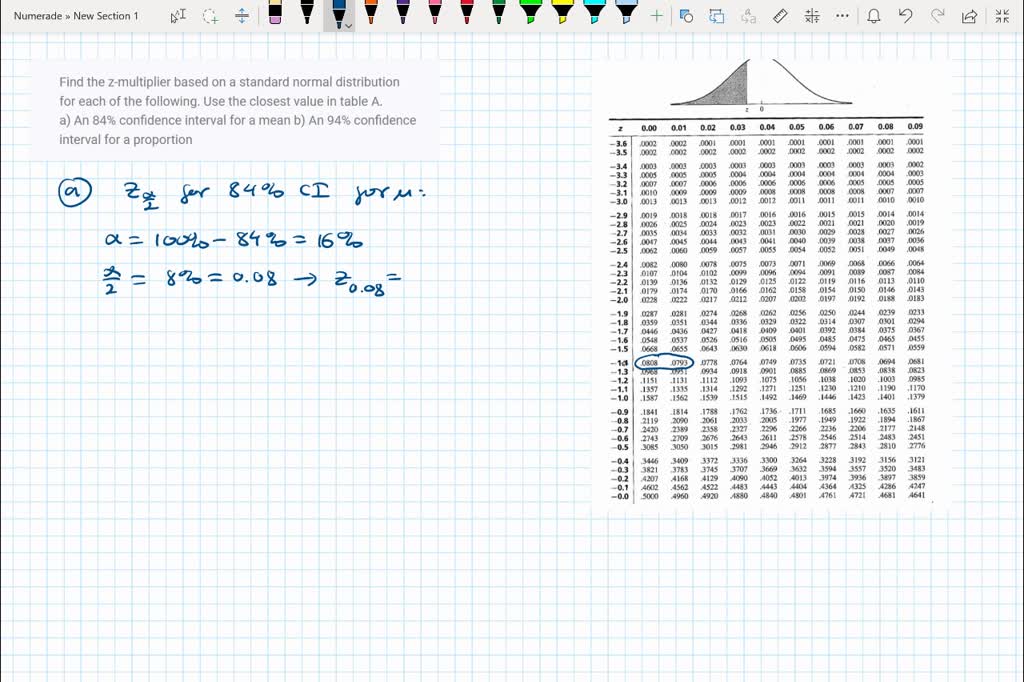 Numerade » New Section 1
Find the z-multiplier based on a standard normal distribution
for each of the following. Use the closest value in table A.
a) An 84% confidence interval for a mean b) An 94% confidence
interval for a proportion
a Z α/2 for 84% CI for μ:
α = 100% - 84% = 16%
α/2 = 8% = 0.08 → Z0.08 =
z 0
z 0.00 0.01 0.02 0.03 0.04 0.05 0.06 0.07 0.08 0.09
-3.6 .0002 .0002 .0001 .0001 .0001 .0001 .0001 .0001 .0001 .0001
-3.5 .0002 .0002 .0002 .0002 .0002 .0002 .0002 .0002 .0002 .0002
-3.4 .0003 .0003 .0003 .0003 .0003 .0003 .0003 .0003 .0003 .0002
-3.3 .0005 .0005 .0005 .0004 .0004 .0004 .0004 .0004 .0004 .0003
-3.2 .0007 .0007 .0006 .0006 .0006 .0006 .0006 .0005 .0005 .0005
-3.1 .0010 .0009 .0009 .0009 .0008 .0008 .0008 .0008 .0007 .0007
-3.0 .0013 .0013 .0013 .0012 .0012 .0011 .0011 .0011 .0010 .0010
-2.9 .0019 .0018 .0018 .0017 .0016 .0016 .0015 .0015 .0014 .0014
-2.8 .0026 .0025 .0024 .0023 .0023 .0022 .0021 .0021 .0020 .0019
-2.7 .0035 .0034 .0033 .0032 .0031 .0030 .0029 .0028 .0027 .0026
-2.6 .0047 .0045 .0044 .0043 .0041 .0040 .0039 .0038 .0037 .0036
-2.5 .0062 .0060 .0059 .0057 .0055 .0054 .0052 .0051 .0049 .0048
-2.4 .0082 .0080 .0078 .0075 .0073 .0071 .0069 .0068 .0066 .0064
-2.3 .0107 .0104 .0102 .0099 .0096 .0094 .0091 .0089 .0087 .0084
-2.2 .0139 .0136 .0132 .0129 .0125 .0122 .0119 .0116 .0113 .0110
-2.1 .0179 .0174 .0170 .0166 .0162 .0158 .0154 .0150 .0146 .0143
-2.0 .0228 .0222 .0217 .0212 .0207 .0202 .0197 .0192 .0188 .0183
-1.9 .0287 .0281 .0274 .0268 .0262 .0256 .0250 .0244 .0239 .0233
-1.8 .0359 .0351 .0344 .0336 .0329 .0322 .0314 .0307 .0301 .0294
-1.7 .0446 .0436 .0427 .0418 .0409 .0401 .0392 .0384 .0375 .0367
-1.6 .0548 .0537 .0526 .0516 .0505 .0495 .0485 .0475 .0465 .0455
-1.5 .0668 .0655 .0643 .0630 .0618 .0606 .0594 .0582 .0571 .0559
.0808 .0793 .0778 .0764 .0749 .0735 .0721 .0708 .0694 .0681
-1.3 .0968 .0951 .0934 .0918 .0901 .0885 .0869 .0853 .0838 .0823
-1.2 .1151 .1131 .1112 .1093 .1075 .1056 .1038 .1020 .1003 .0985
-1.1 .1357 .1335 .1314 .1292 .1271 .1251 .1230 .1210 .1190 .1170
-1.0 .1587 .1562 .1539 .1515 .1492 .1469 .1446 .1423 .1401 .1379
-0.9 .1841 .1814 .1788 .1762 .1736 .1711 .1685 .1660 .1635 .1611
-0.8 .2119 .2090 .2061 .2033 .2005 .1977 .1949 .1922 .1894 .1867
-0.7 .2420 .2389 .2358 .2327 .2296 .2266 .2236 .2206 .2177 .2148
-0.6 .2743 .2709 .2676 .2643 .2611 .2578 .2546 .2514 .2483 .2451
-0.5 .3085 .3050 .3015 .2981 .2946 .2912 .2877 .2843 .2810 .2776
-0.4 .3446 .3409 .3372 .3336 .3300 .3264 .3228 .3192 .3156 .3121
-0.3 .3821 .3783 .3745 .3707 .3669 .3632 .3594 .3557 .3520 .3483
-0.2 .4207 .4168 .4129 .4090 .4052 .4013 .3974 .3936 .3897 .3859
-0.1 .4602 .4562 .4522 .4483 .4443 .4404 .4364 .4325 .4286 .4247
-0.0 .5000 .4960 .4920 .4880 .4840 .4801 .4761 .4721 .4681 .4641